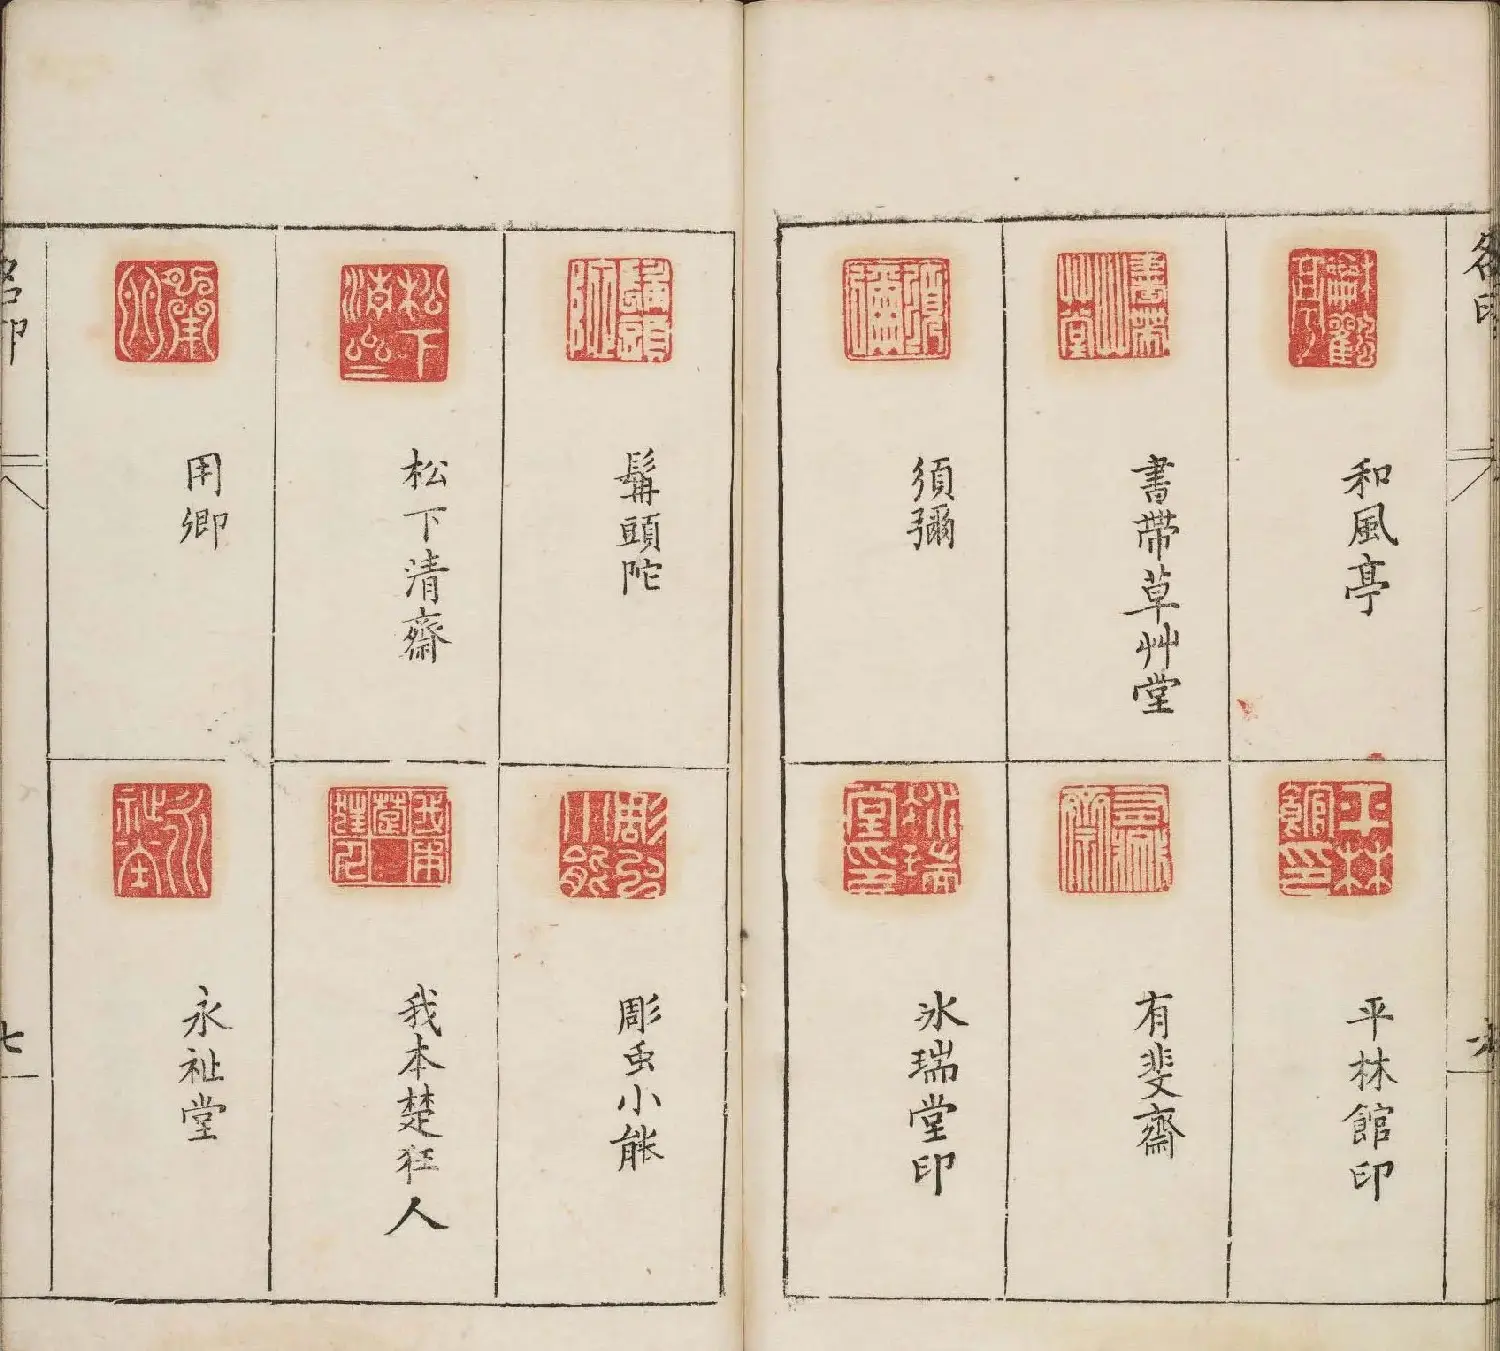 和風亭
書帶草艸堂
須彌
平林館印
有斐齋
氷瑞堂印
髯頭陀
松下清齋
用卿
彫虫小能
我本楚狂人
永祉堂
七